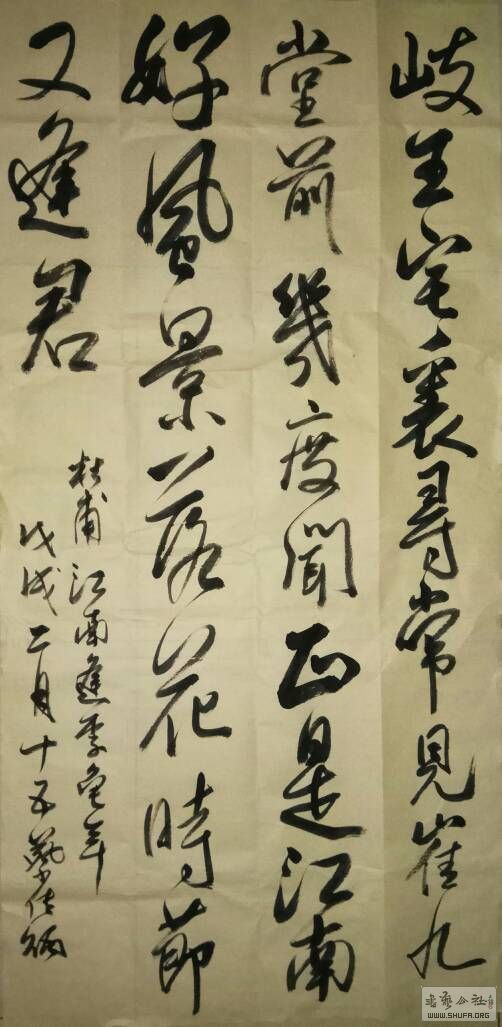 岐王宅裏尋常見崔九
堂前幾度聞正是江南
好風景落花時節
又逢君
杜甫江南逢李龜年
戊戌二月十五
WWW.SHUFA.ORG